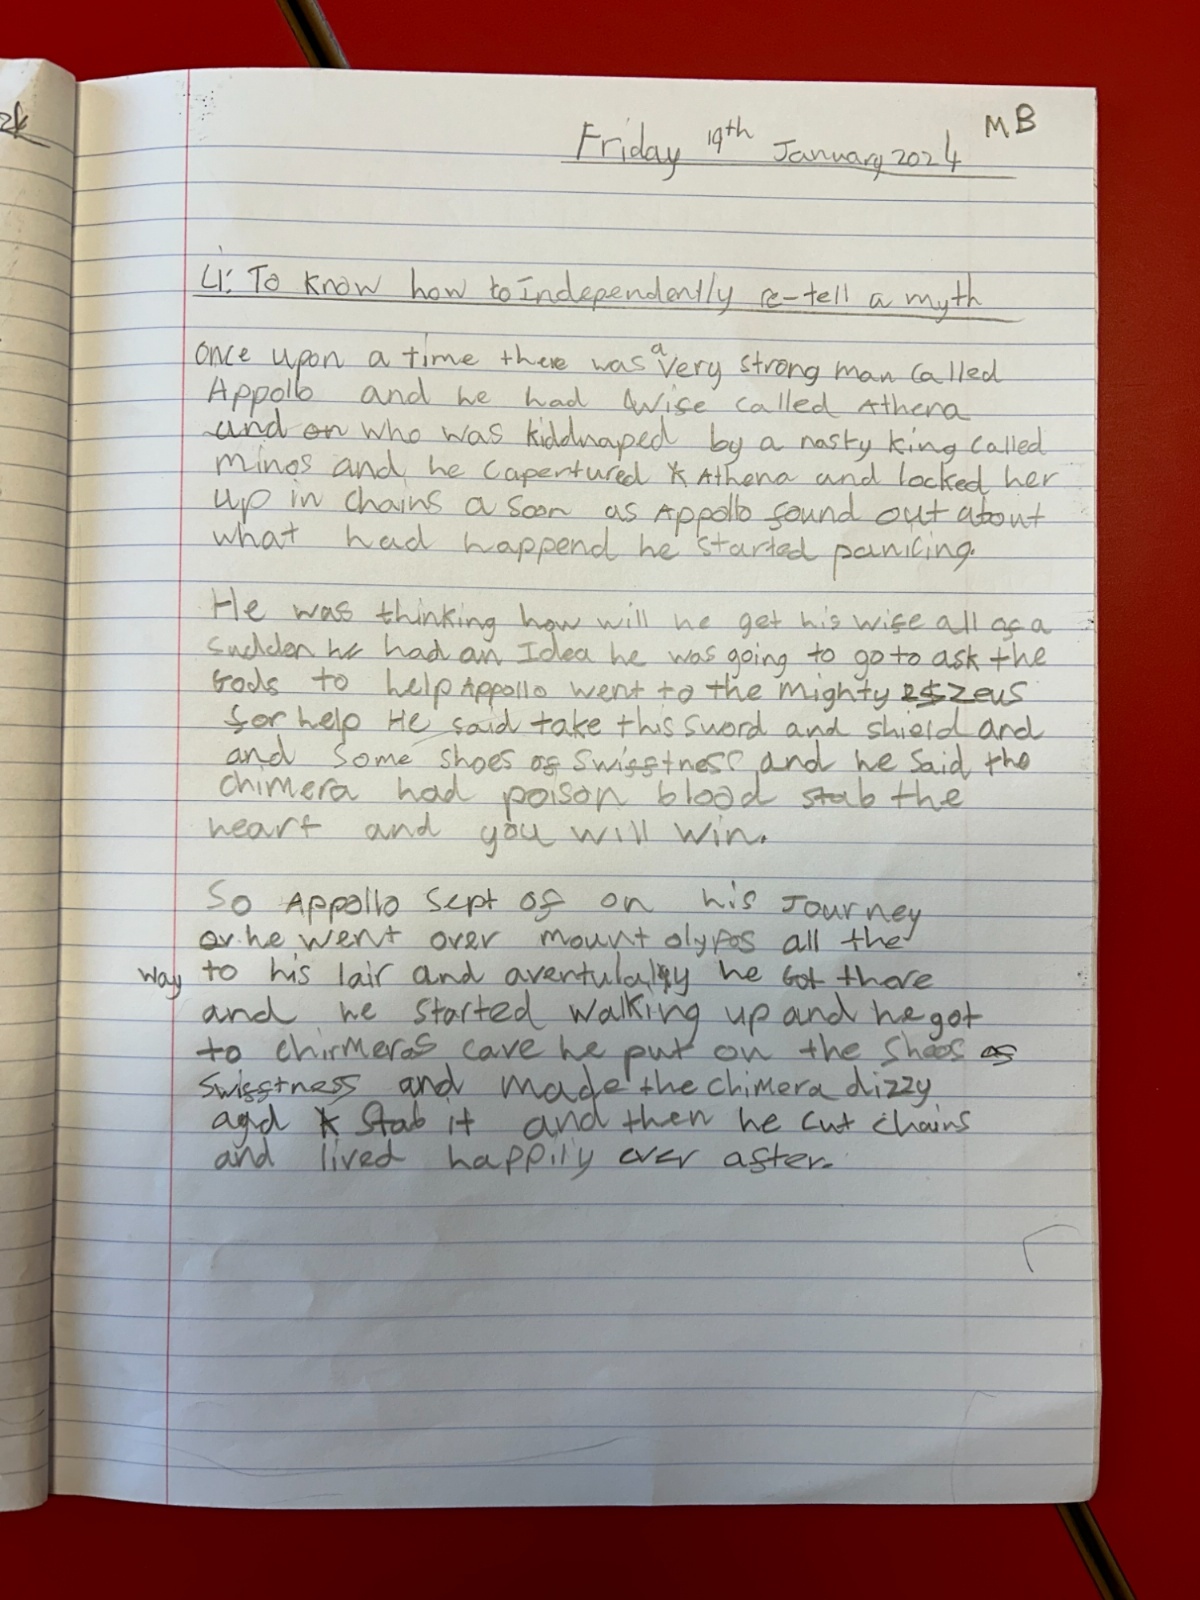 MB
Friday 19th January 2024
LI: To know how to independently re-tell a myth
once upon a time there was a very strong man called
Appollo and he had wife called Athena
and on who was kiddnaped by a nasty king called
minos and he capertured Athena and locked her
up in chains a soon as Appollo found out about
what had happend he started panicing.
He was thinking how will he get his wife all of a
sudden he had an Idea he was going to go to ask the
Gods to help Appollo went to the mighty Zeus
for help He said take this sword and shield and
and some shoes of swifftness and he said the
chimera had poison blood stab the
heart and you will win.
So Appollo sept of on his Journey
or he went over mount olypos all the
way to his lair and aventulaly he got there
and he started walking up and he got
to chirmeras cave he put on the shoes of
swifftness and made the chimera dizzy
and stab it and then he cut chains
and lived happily ever after.